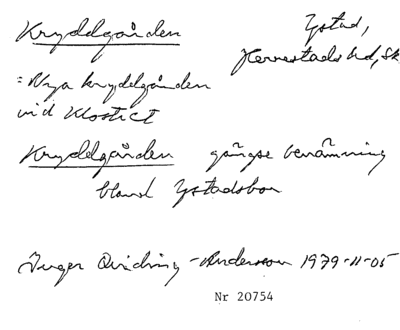 Kryddgården
Ystad,
Herrestads hd, Sk
= Nya kryddgården
vid Klostret
Kryddgården gängse benämning
bland Ystadsbor
Inger Quiding-Andersson 1979-11-05
Nr 20754